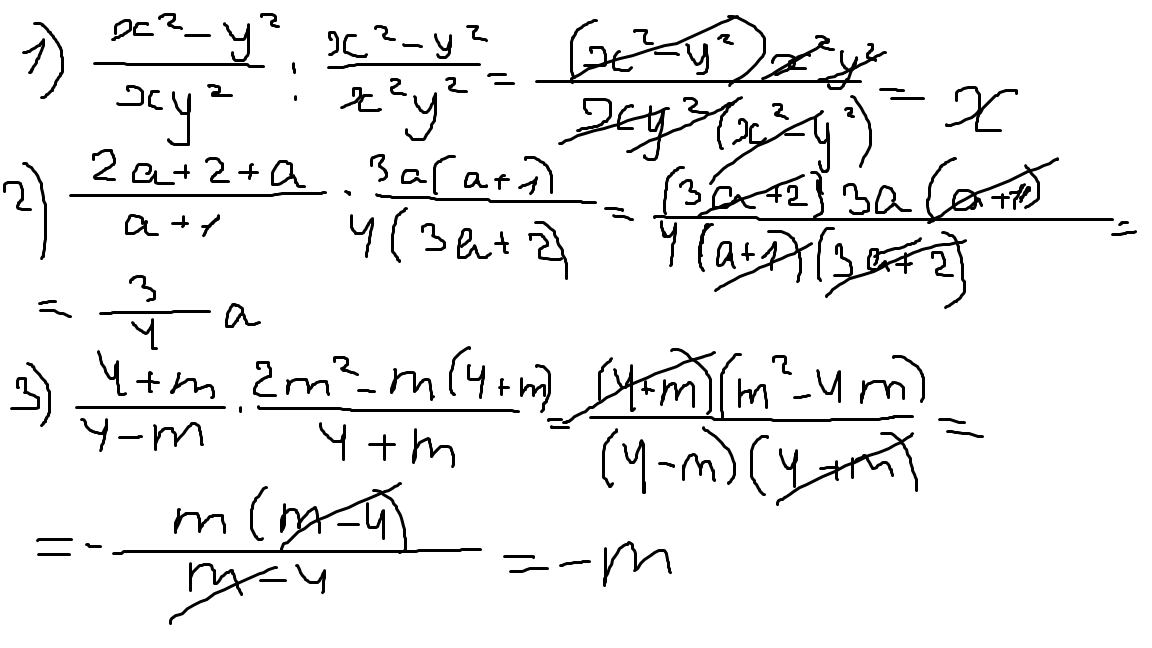 1) \frac{x^2-y^2}{xy^2} : \frac{x^2-y^2}{x^2y^2} = \frac{(x^2-y^2)x^2y^2}{xy^2(x^2-y^2)} = x
2) \frac{2a+2+a}{a+1} \cdot \frac{3a(a+1)}{4(3a+2)} = \frac{(3a+2)3a(a+1)}{4(a+1)(3a+2)} =
= \frac{3}{4} a
3) \frac{4+m}{4-m} \cdot \frac{2m^2-m(4+m)}{4+m} = \frac{(4+m)(m^2-4m)}{(4-m)(4+m)} =
= -\frac{m(m-4)}{m-4} = -m